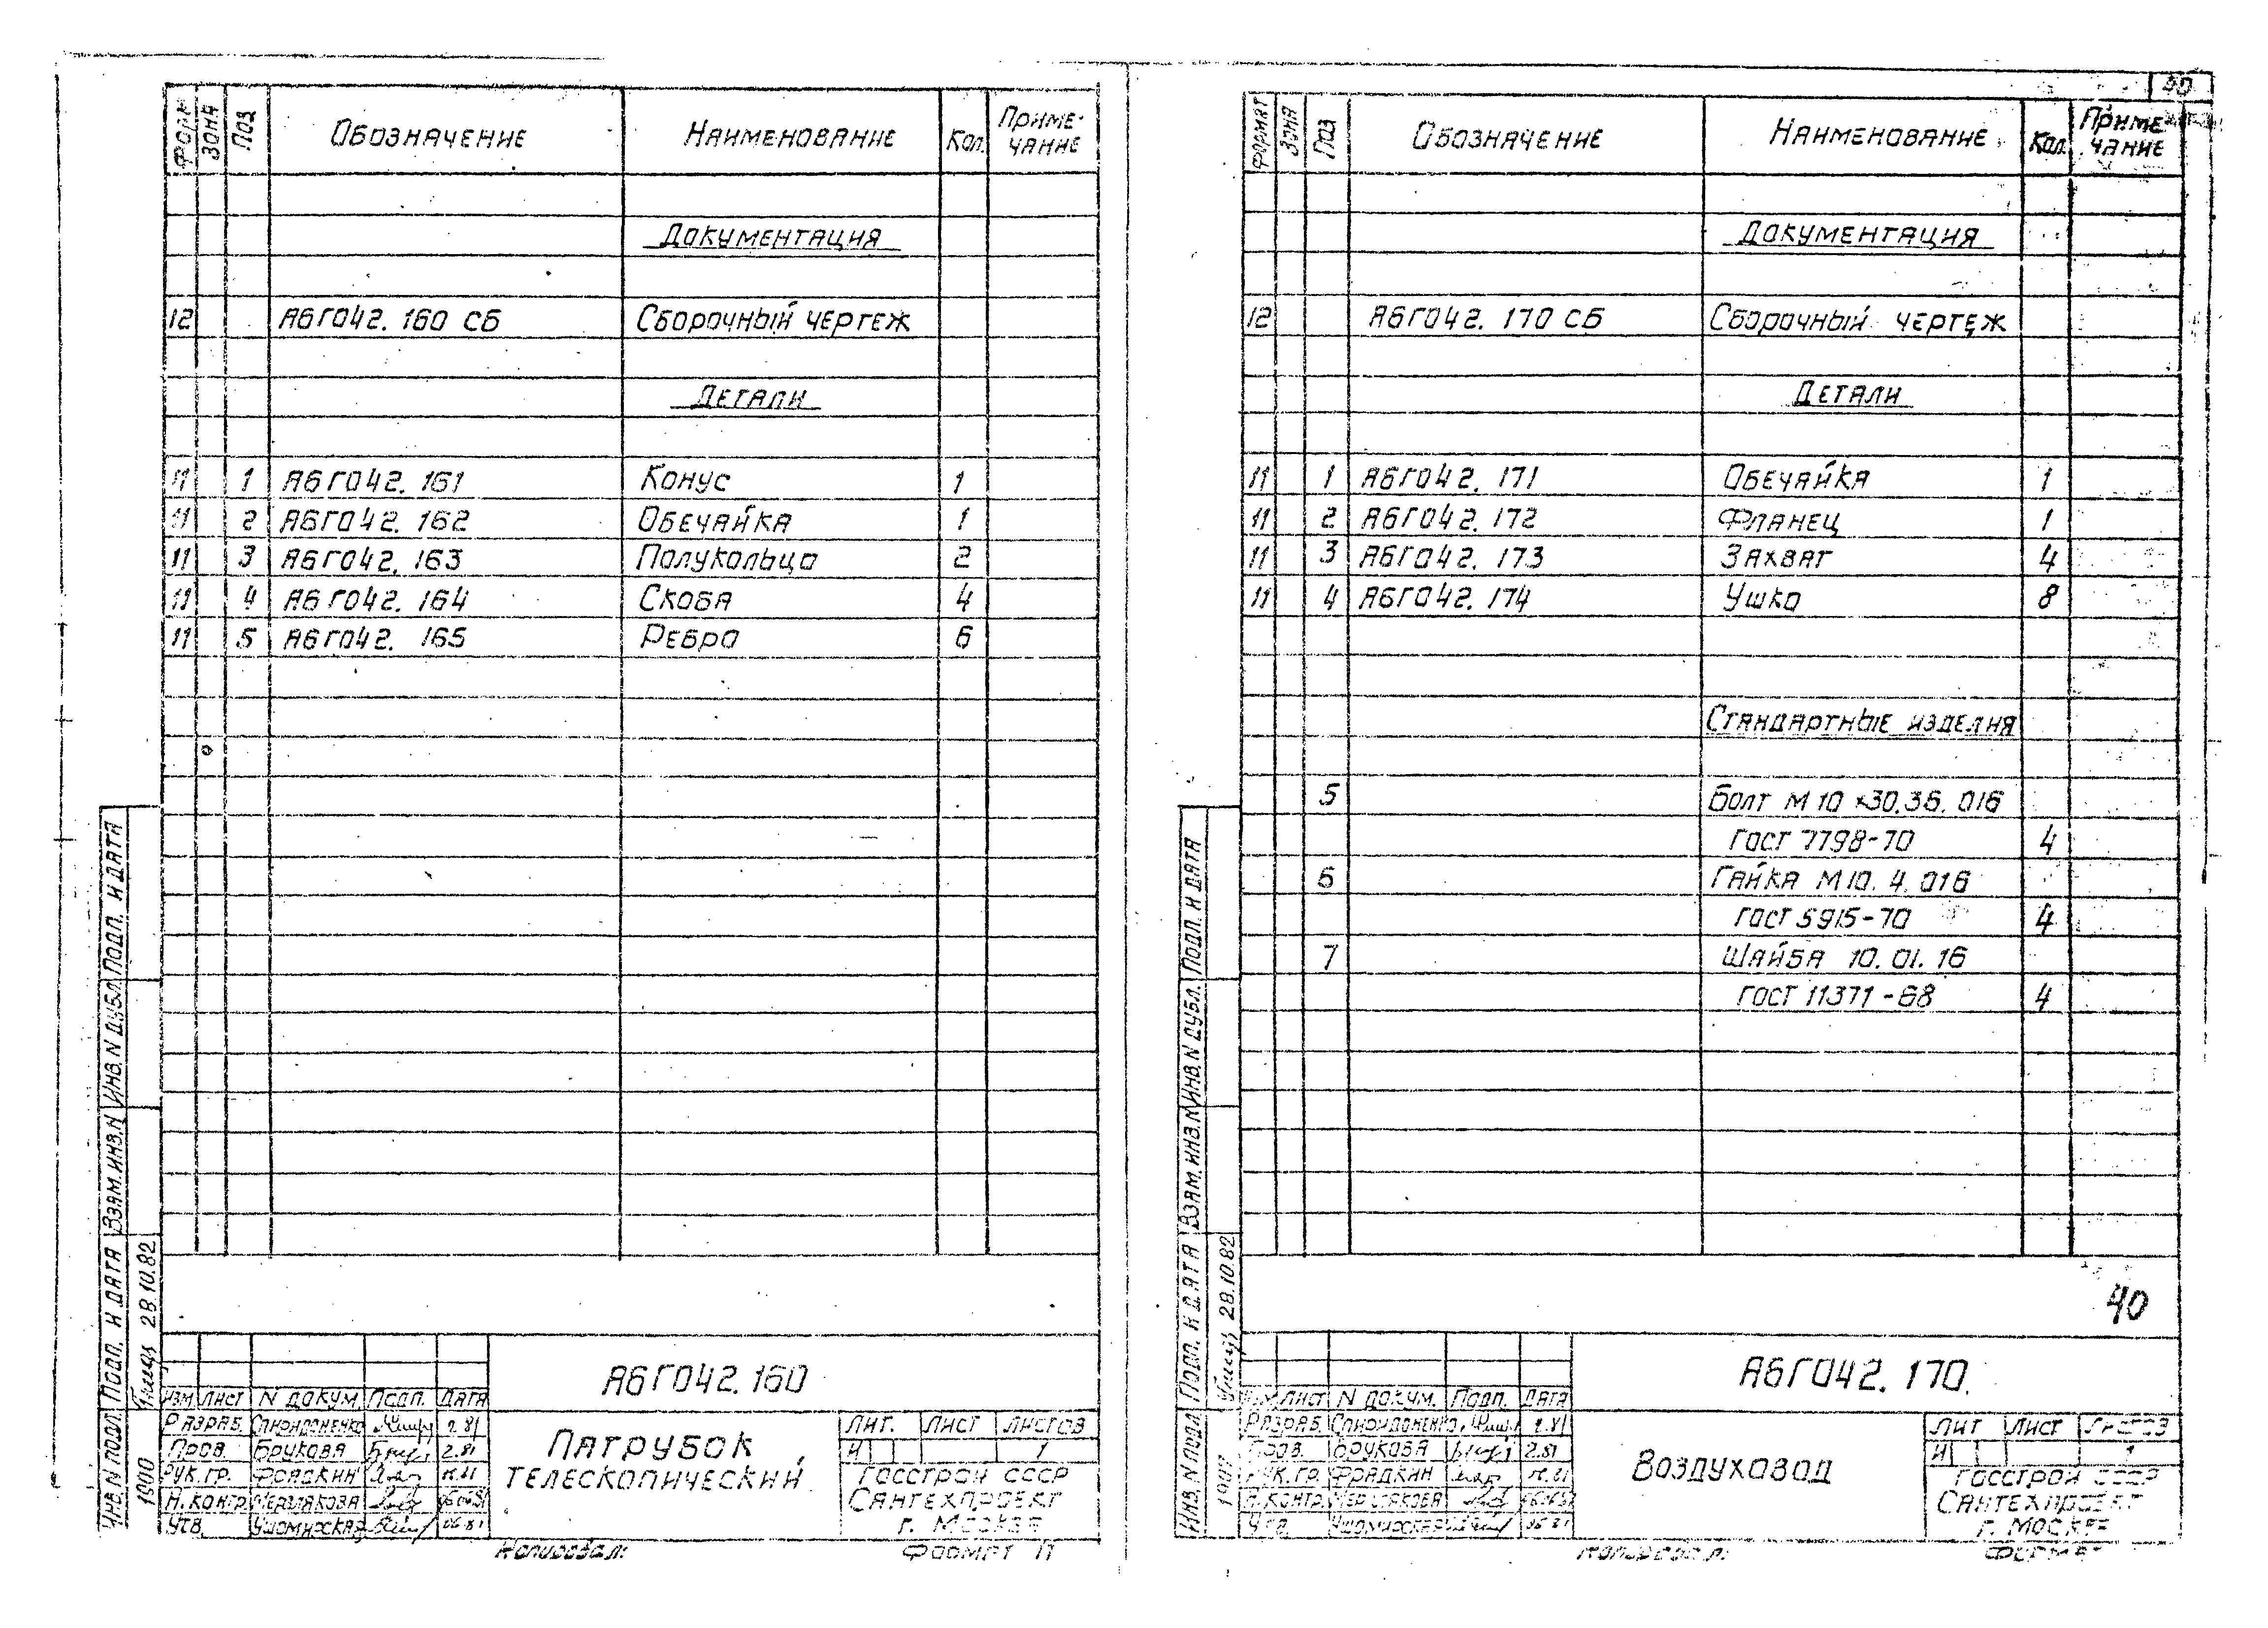 Форм Зона Поз Обозначение Наименование Кол. Приме-
чание
Документация
12 А6Г042. 160 СБ Сборочный чертеж
Детали
11 1 А6Г042. 161 Конус 1
11 2 А6Г042. 162 Обечайка 1
11 3 А6Г042. 163 Полукольцо 2
11 4 А6Г042. 164 Скоба 4
11 5 А6Г042. 165 Ребро 6
Инв. N подл. Подп. и дата Взам. инв. N Инв. N дубл. Подп. и дата
1900 28.10.82
А6Г042. 160
Изм Лист N докум. Подп. Дата
Разраб. Спиридоненко 2.81
Пров. Брукова 2.81
Рук. гр. Фрадкин 11.81
Н. контр. Чермакова
Утв. 06.81
Патрубок
телескопический
Лит. Лист Листов
И 1
Госстрой СССР
Сантехпроект
г. Москва
Копировал: Формат 11
40
Формат Зона Поз Обозначение Наименование Кол. Приме-
чание
Документация
12 А6Г042. 170 СБ Сборочный чертеж
Детали
11 1 А6Г042. 171 Обечайка 1
11 2 А6Г042. 172 Фланец 1
11 3 А6Г042. 173 Захват 4
11 4 А6Г042. 174 Ушко 8
Стандартные изделия
5 Болт М10×30.36. 016
ГОСТ 7798-70 4
6 Гайка М10. 4. 016
ГОСТ 5915-70 4
7 Шайба 10. 01. 16
ГОСТ 11371-68 4
Инв. N подл Подп. и дата Взам. инв. N Инв. N дубл. Подп. и дата
28.10.82
40
А6Г042. 170.
Изм Лист N докум. Подп. Дата
Разраб. Спиридоненко 2.81
Пров. Брукова 2.81
Рук. гр. Фрадкин 11.81
Н. контр.
Утв. 06.81
Воздуховод
Лит Лист Листов
И 1
Госстрой СССР
Сантехпроект
г. Москва
Копировал: Формат